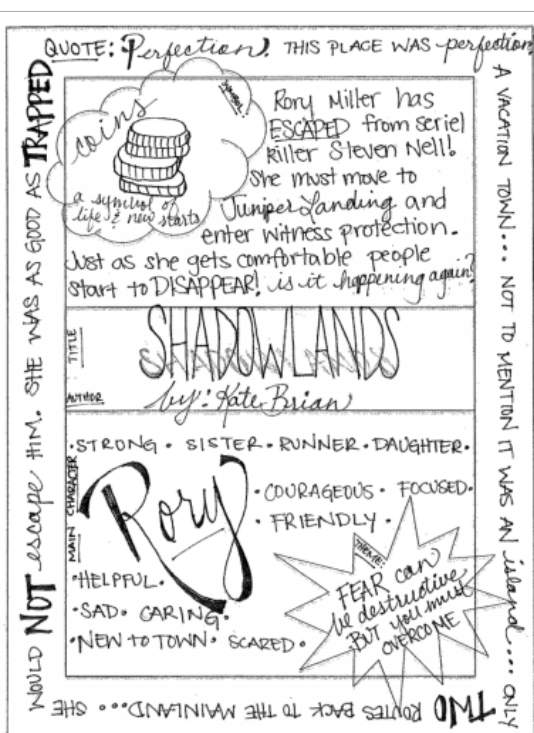 QUOTE: Perfection! THIS PLACE WAS perfection.
A VACATION TOWN... NOT TO MENTION IT WAS AN island... ONLY
TWO ROUTES BACK TO THE MAINLAND... SHE
WOULD NOT escape HIM. SHE WAS AS GOOD AS TRAPPED
SYMBOL:
coins
a symbol of
life & new starts
Rory Miller has
ESCAPED from seriel
killer Steven Nell!
She must move to
Juniper Landing and
enter witness protection.
Just as she gets comfortable people
start to DISAPPEAR! is it happening again?
TITLE
SHADOWLANDS
AUTHOR
by: Kate Brian
MAIN CHARACTER
•STRONG • SISTER • RUNNER • DAUGHTER•
Rory
•COURAGEOUS • FOCUSED•
• FRIENDLY •
•HELPFUL•
•SAD• CARING•
•NEW TO TOWN• SCARED •
THEME:
FEAR can
be destructive
BUT you must
OVERCOME